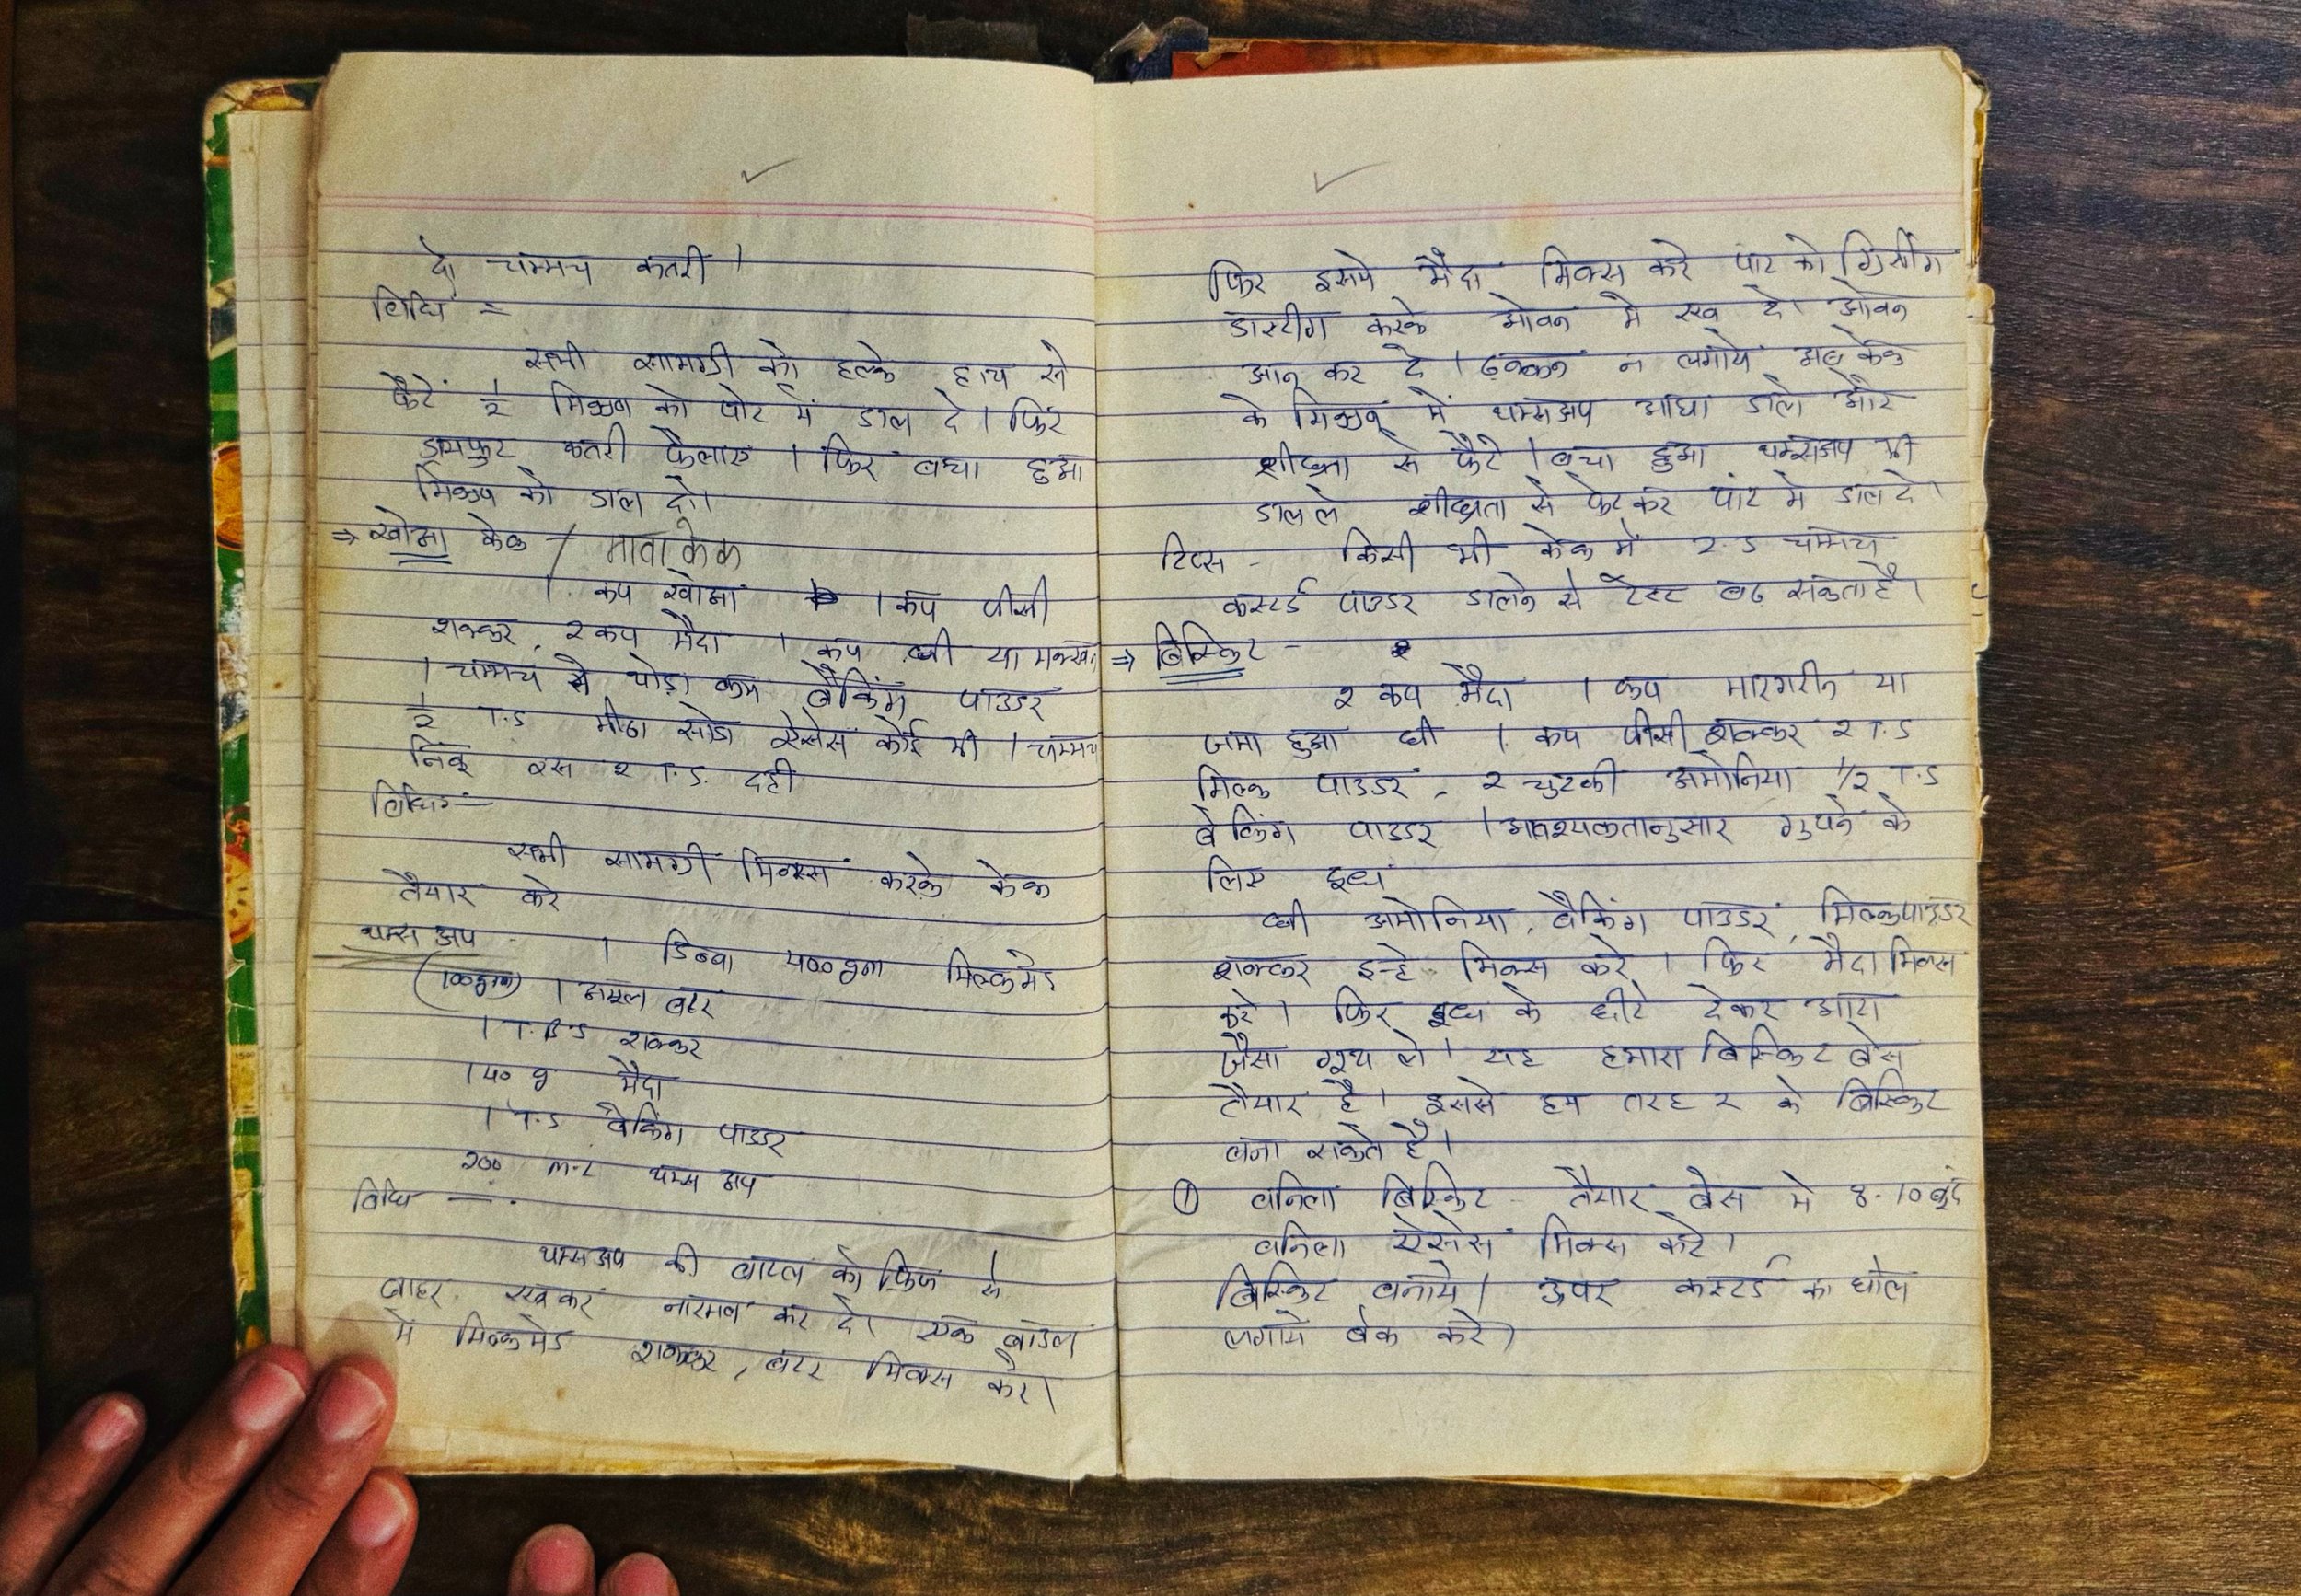 दो चम्मच कतरी ।
विधि =
सभी सामग्री को हल्के हाथ से
फैटें ½ मिश्रण को पोट में डाल दे । फिर
ड्रायफ्रुट कतरी फैलाए । फिर बचा हुआ
मिश्रण को डाल दो ।
⇒ खोआ केक / मावा केक
1 कप खोआ 1 कप पीसी
शक्कर, २ कप मैदा 1 कप घी या मक्खन
1 चम्मच से थोड़ा कम बैकिंग पाउडर
½ T.S मीठा सोडा ऐसेंस कोई भी 1 चम्मच
निंबू रस २ T.S. दही
विधि:-
सभी सामग्री मिक्स करके केक
तैयार करे
थम्स अप - 1 डिब्बा 400 gm मिल्कमेड
(100gm) 1 अमूल बटर
1 T.B.S शक्कर
140 g मैदा
1 T.S बैकिंग पाउडर
200 m.L थम्स अप
विधि —
थम्सअप की बाटल को फ्रिज से
बाहर रखकर नारमल कर दे । एक बाउल
मे मिल्कमेड शक्कर, बटर मिक्स करे ।
फिर इसमे मैदा मिक्स करे पाट को ग्रिसींग
डास्टींग करके ओवन मे रख दे । ओवन
आन् कर दे । ढक्कन न लगाये अब केक
के मिश्रण में थम्सअप आधा डाले और
शीघ्रता से फैटे । बचा हुआ थम्सअप भी
डालले शीघ्रता से फेटकर पाट मे डाल दे ।
टिप्स - किसी भी केक में २.S चम्मच
कस्टर्ड पाउडर डालने से टेस्ट बढ सकता है ।
⇒ बिस्किट -
२ कप मैदा 1 कप मारगरीन या
जमा हुआ घी 1 कप पीसी शक्कर २ T.S
मिल्क पाउडर, २ चुटकी अमोनिया 1/२ T.S
बेकिंग पाउडर । आवश्यकतानुसार गुथने के
लिए दूध
घी अमोनिया, बैकिंग पाउडर, मिल्कपाउडर
शक्कर इन्हे मिक्स करे । फिर मैदा मिक्स
करे । फिर दूध के छीटे देकर आटा
जैसा गूथ ले । यह हमारा बिस्किट बेस
तैयार है । इससे हम तरह २ के बिस्किट
बना सकते है ।
① वनिला बिस्किट - तैयार बेस मे 8-10 बूंद
वनिला ऐसेंस मिक्स करे ।
बिस्किट बनाये । ऊपर कस्टर्ड का घोल
लगाये बेक करे ।